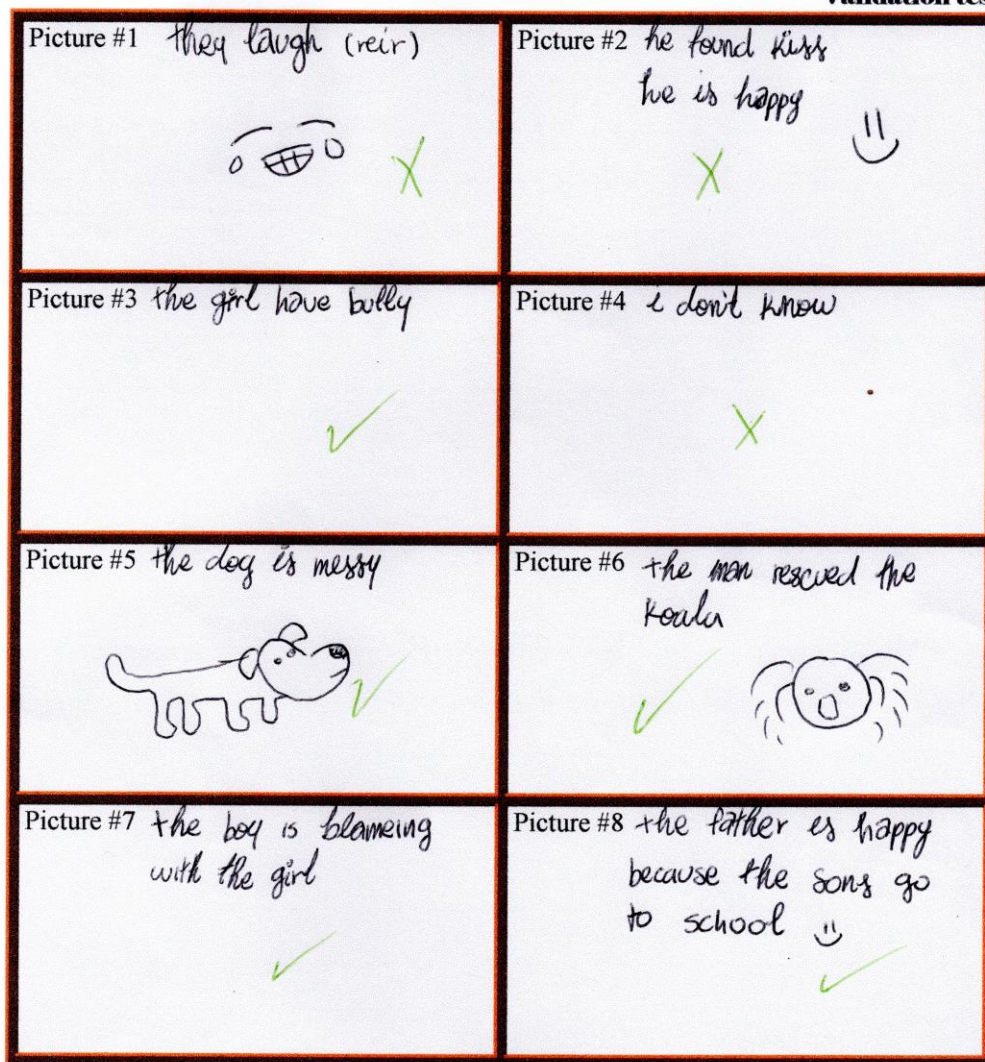 Validation tes
Picture #1 they laugh (reir)
Picture #2 he found kiss
he is happy
Picture #3 the girl have bully
Picture #4 i don't know
Picture #5 the dog is messy
Picture #6 the man rescued the
koala
Picture #7 the boy is blameing
with the girl
Picture #8 the father is happy
because the sons go
to school